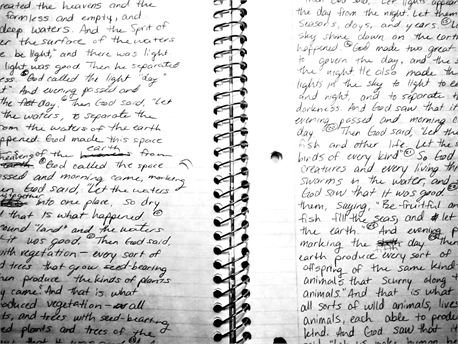 reated the heavens and the
formless and empty, and
deep waters. And the Spirit of
er the surface of the waters
e be light," and there was light
light was good. Then he separated
ess. God called the light "day"
t". And evening passed and
the day. Then God said, "Let
the waters, to separate the
rom the waters of the earth
appened. God made this space
earth
of the from
God called the space
ssed and morning came, marking
en God said, "Let the waters
together
into one place, so dry
d that is what happened.
round "land" and the waters
it was good. Then God said,
with vegetation - every sort of
d trees that grow seed-bearing
then produce the kinds of plants
y came." And that is what
oduced vegetation - all
ts, and trees with seed-bearing
ed plants and trees of the
God said, "Let lights appear
the day from the night. Let them
seasons, days, and years. Let
sky shine down on the earth
happened. God made two great
to govern the day, and the s
the night. He also made the
lights in the sky to light to ea
and night, and to separate t
darkness. And God saw that it
evening passed and morning c
day. Then God said, "Let the
fish and other life. Let the
birds of every kind." So God
creatures and every living th
swarms in the water, and
God saw that it was good.
them, saying, "Be fruitful an
fish fill the seas, and let
the earth." And evening p
marking the day. Then
earth produce every sort of
offspring of the same kind
animals that scurry along t
animals." And that is what
all sorts of wild animals, lives
animals, each able to produc
kind. And God saw that it
said "Let us make human be